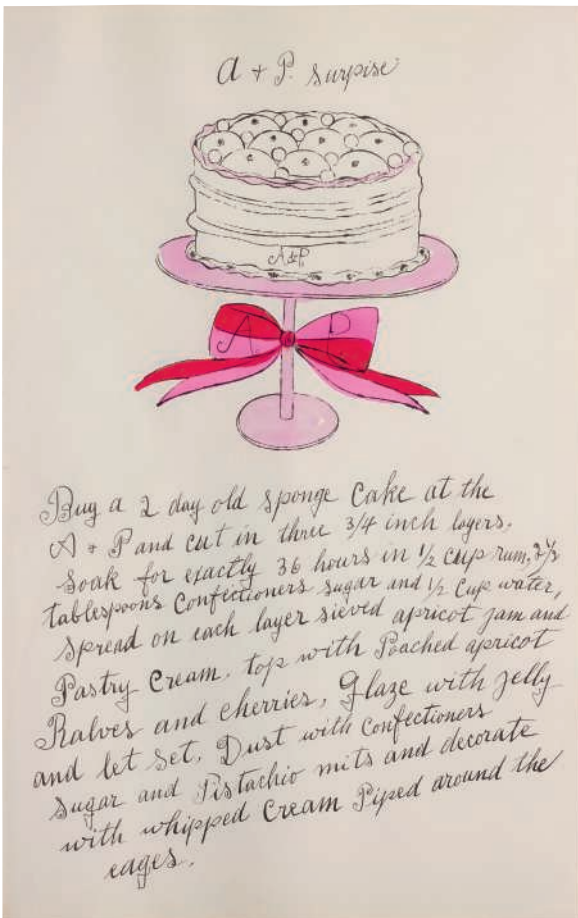 A + P. surprise
A & P.
A P
Buy a 2 day old sponge Cake at the
A + P and cut in three 3/4 inch layers.
Soak for exactly 36 hours in 1/2 cup rum, 2 1/2
tablespoons Confectioners sugar and 1/2 Cup water,
spread on each layer sieved apricot jam and
Pastry Cream. top with Poached apricot
Halves and cherries, Glaze with jelly
and let set. Dust with Confectioners
sugar and Pistachio nuts and decorate
with whipped Cream Piped around the
edges.